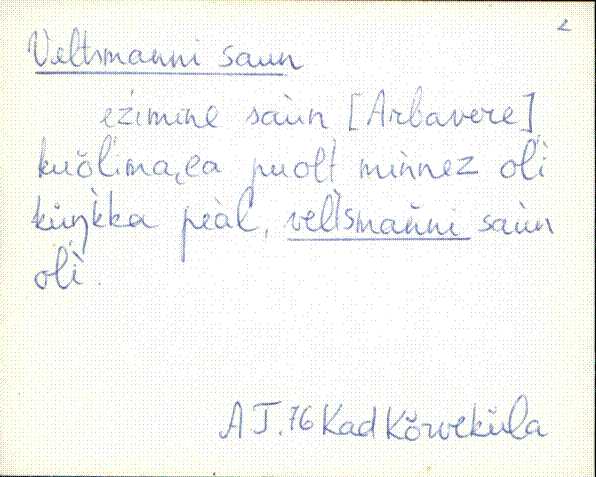 2
Veltsmanni saun
ežimine saùn [Arbavere]
kuõlima,ea puolt minnez oli
küŋ̀kka peàl, veltsmańni saùn
olì.
AT. 76 Kad Kõrveküla